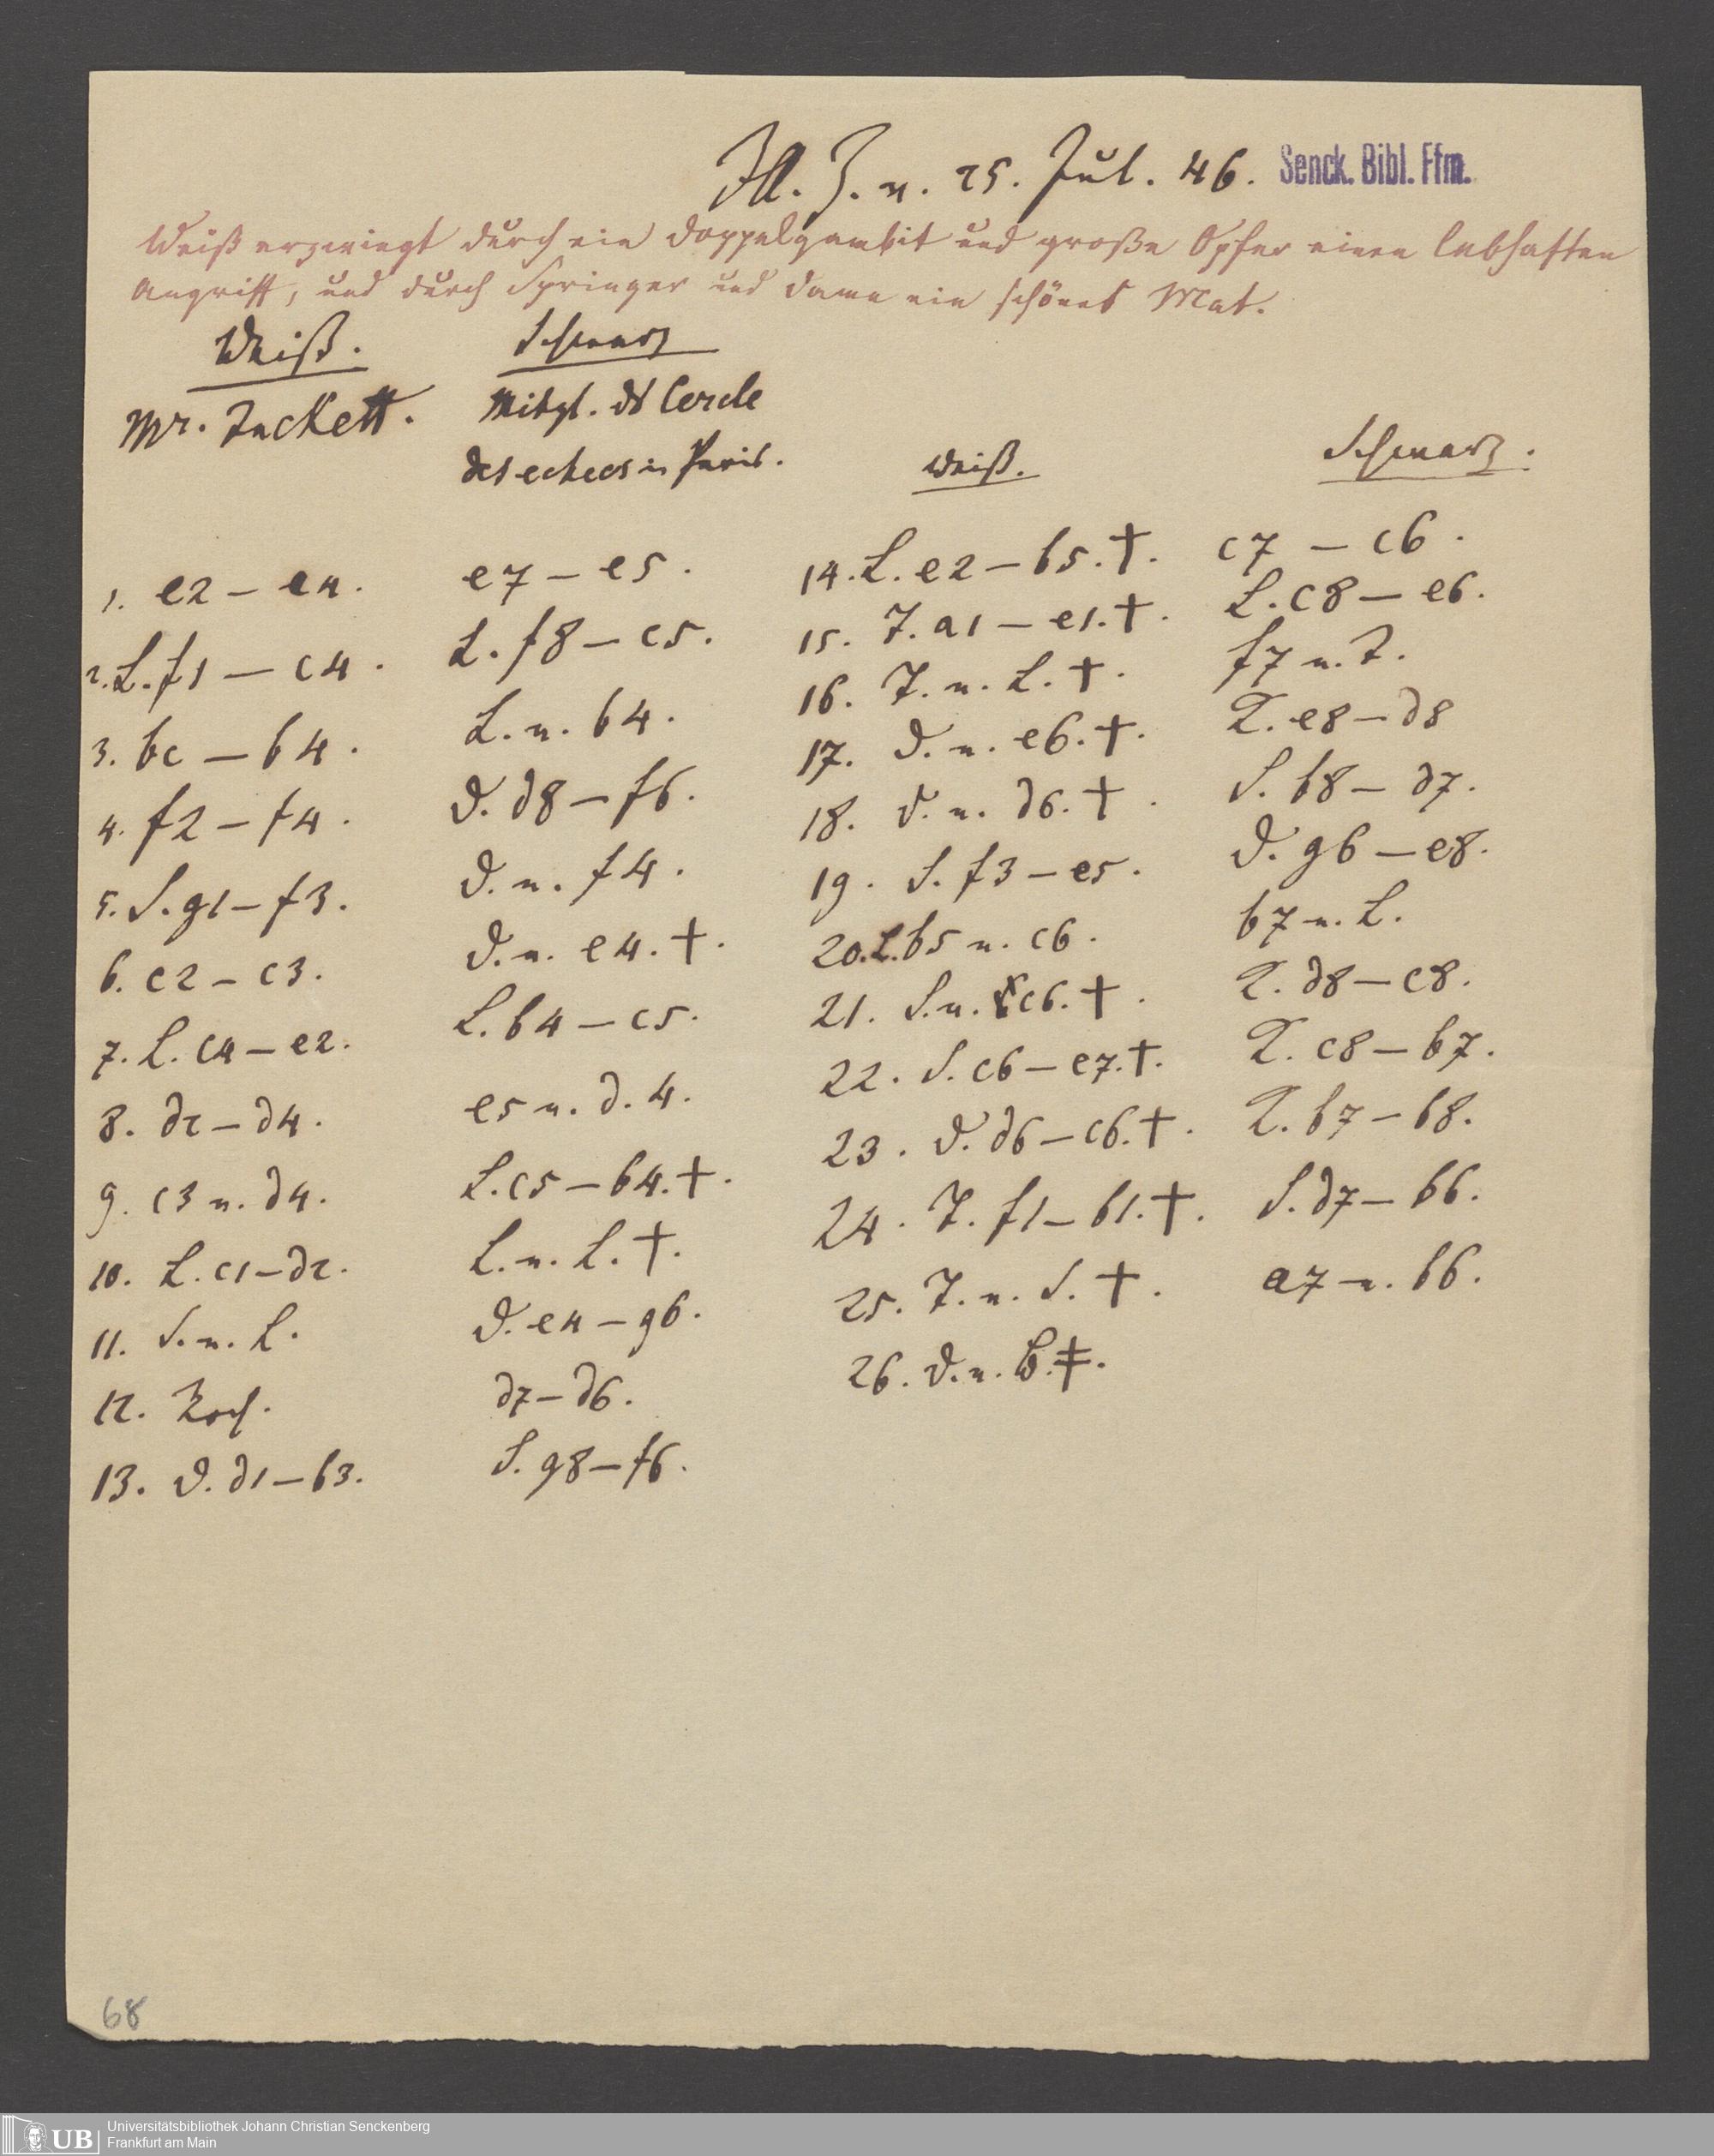 Ill. Z. n. 25. Jul. 46. Senck. Bibl. Ffm.
Weiß erzwingt durch ein Doppelgambit und große Opfer einen lebhaften
Angriff, und durch Springer und Dame ein schönes Mat.
Weiß. Schwarz
Mr. Tuckett. Mitgl. ds Cercle
des echecs in Paris.
Weiß. Schwarz.
1. e2 – e4. e7 – e5.
2. L. f1 – c4. L. f8 – c5.
3. b2 – b4. L. n. b4.
4. f2 – f4. D. d8 – f6.
5. S. g1 – f3. D. n. f4.
6. c2 – c3. D. n. e4. †.
7. L. c4 – e2. L. b4 – c5.
8. d2 – d4. e5 n. d. 4.
9. c3 n. d4. L. c5 – b4. †.
10. L. c1 – d2. L. n. L. †.
11. S. n. L. D. e4 – g6.
12. Roch. d7 – d6.
13. D. d1 – b3. S. g8 – f6.
14. L. e2 – b5. †. c7 – c6.
15. T. a1 – e1. †. L. c8 – e6.
16. T. n. L. †. f7 n. T.
17. D. n. e6. †. K. e8 – d8
18. D. n. d6. †. S. b8 – d7.
19. S. f3 – e5. D. g6 – e8.
20. L. b5 n. c6. b7 n. L.
21. S. n. c6. †. K. d8 – c8.
22. S. c6 – e7. †. K. c8 – b7.
23. D. d6 – c6. †. K. b7 – b8.
24. T. f1 – b1. †. S. d7 – b6.
25. T. n. S. †. a7 n. b6.
26. D. n. B. ‡.
68
UB Universitätsbibliothek Johann Christian Senckenberg
Frankfurt am Main